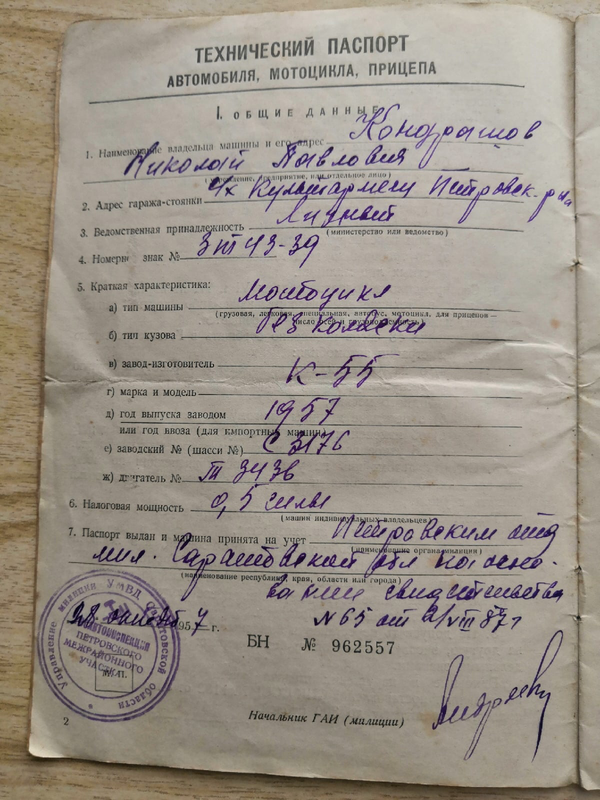 ТЕХНИЧЕСКИЙ ПАСПОРТ
АВТОМОБИЛЯ, МОТОЦИКЛА, ПРИЦЕПА
I. ОБЩИЕ ДАННЫЕ
1. Наименование владельца машины и его адрес Кондрашов
Николай Павлович
(учреждение, предприятие, или отдельное лицо)
2. Адрес гаража-стоянки
3. Ведомственная принадлежность Личный
(министерство или ведомство)
4. Номерн знак № 43-39
5. Краткая характеристика:
а) тип машины мотоцикл
(грузовая, легковая, специальная, автобус, мотоцикл, для прицепов —
число осей и грузоподъемность)
б) тип кузова без коляски
в) завод-изготовитель
г) марка и модель К-55
д) год выпуска заводом 1957
или год ввоза (для импортных машин)
е) заводский № (шасси №) С 3176
ж) двигатель № 3436
6. Налоговая мощность 0,5 силы
(машин индивидуальных владельцев)
7. Паспорт выдан и машина принята на учет Петровским отд
(наименование органа милиции)
мил. Саратовской обл на осно-
(наименование республики, края, области или города)
вании свидетельства
195 7 г. №65 от
БН № 962557
Управление милиции УМВД Саратовской области
ПЕТРОВСКОГО
МЕЖРАЙОННОГО
УЧАСТКА
2
Начальник ГАИ (милиции)